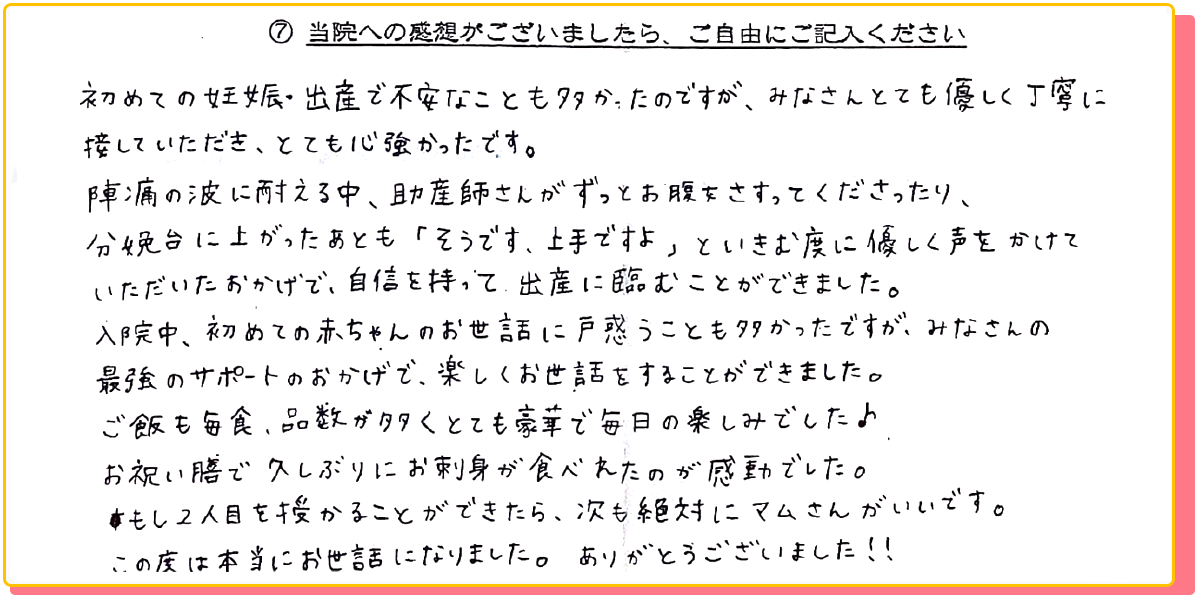 ⑦ 当院への感想がございましたら、ご自由にご記入ください
初めての妊娠・出産で不安なことも多かったのですが、みなさんとても優しく丁寧に
接していただき、とても心強かったです。
陣痛の波に耐える中、助産師さんがずっとお腹をさすってくださったり、
分娩台に上がったあとも「そうです、上手ですよ」といきむ度に優しく声をかけて
いただいたおかげで、自信を持って出産に臨むことができました。
入院中、初めての赤ちゃんのお世話に戸惑うことも多かったですが、みなさんの
最強のサポートのおかげで、楽しくお世話をすることができました。
ご飯も毎食、品数が多くとても豪華で毎日の楽しみでした♪
お祝い膳で久しぶりにお刺身が食べれたのが感動でした。
もし2人目を授かることができたら、次も絶対にマムさんがいいです。
この度は本当にお世話になりました。ありがとうございました!!